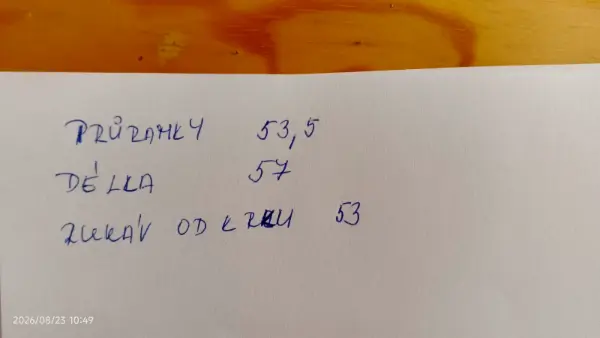 PRŮRAMKY 53,5
DÉLKA 57
RUKÁV OD KRKU 53
2026/08/23 10:49